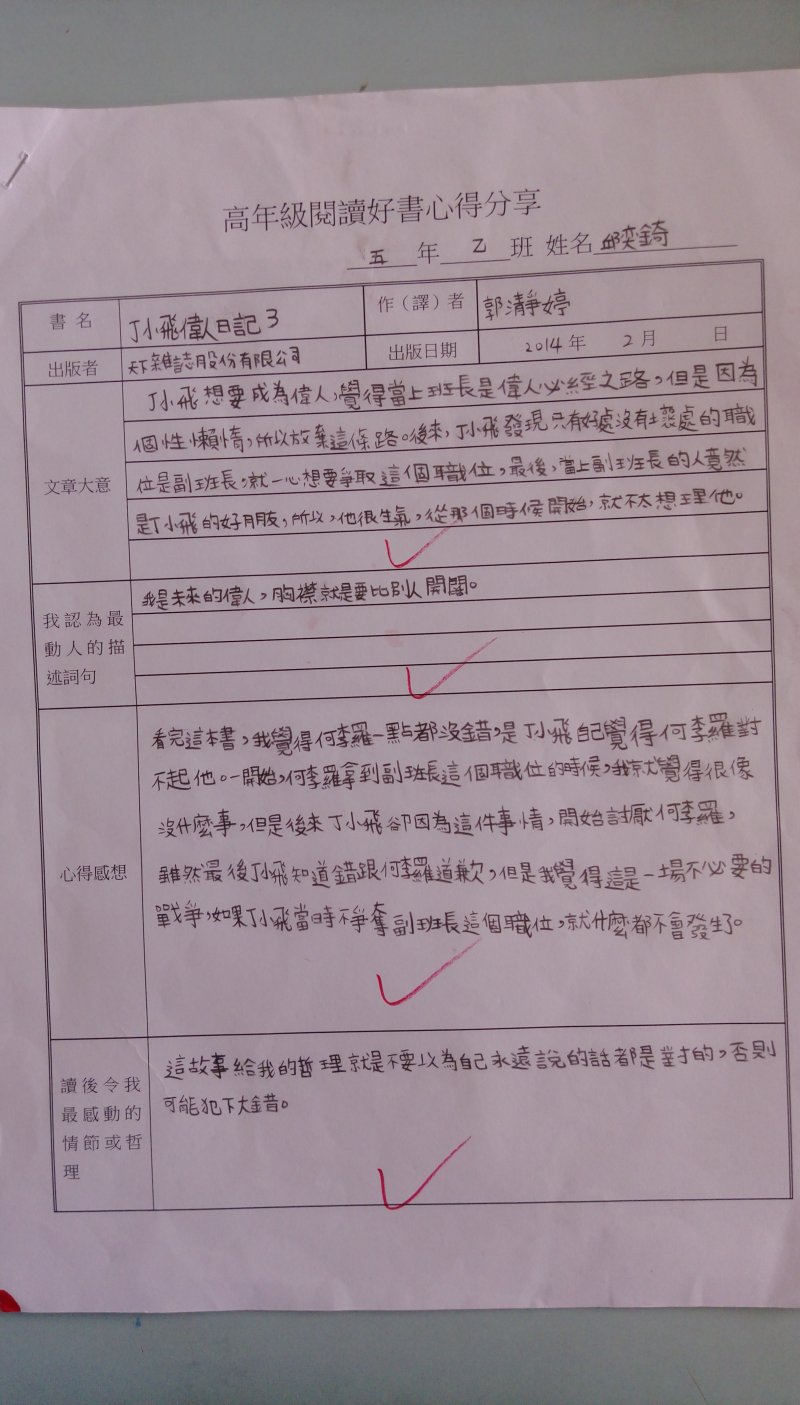 高年級閱讀好書心得分享
五年乙班 姓名邱奕錡
書名 丁小飛偉人日記3 作（譯）者 郭瀞婷
出版者 天下雜誌股份有限公司 出版日期 2014年 2月 日
文章大意
丁小飛想要成為偉人，覺得當上班長是偉人必經之路，但是因為
個性懶惰，所以放棄這條路。後來，丁小飛發現只有好處沒有壞處的職
位是副班長，就一心想要爭取這個職位，最後，當上副班長的人竟然
是丁小飛的好朋友，所以，他很生氣，從那個時候開始，就不太想理他。
我認為最
動人的描
述詞句
我是未來的偉人，胸襟就是要比別人開闊。
心得感想
看完這本書，我覺得何李羅一點都沒錯，是丁小飛自己覺得何李羅對
不起他。一開始，何李羅拿到副班長這個職位的時候，我就覺得很像
沒什麼事，但是後來丁小飛卻因為這件事情，開始討厭何李羅，
雖然最後丁小飛知道錯跟何李羅道歉，但是我覺得這是一場不必要的
戰爭，如果丁小飛當時不爭奪副班長這個職位，就什麼都不會發生了。
讀後令我
最感動的
情節或哲
理
這故事給我的哲理就是不要以為自己永遠說的話都是對的，否則
可能犯下大錯。